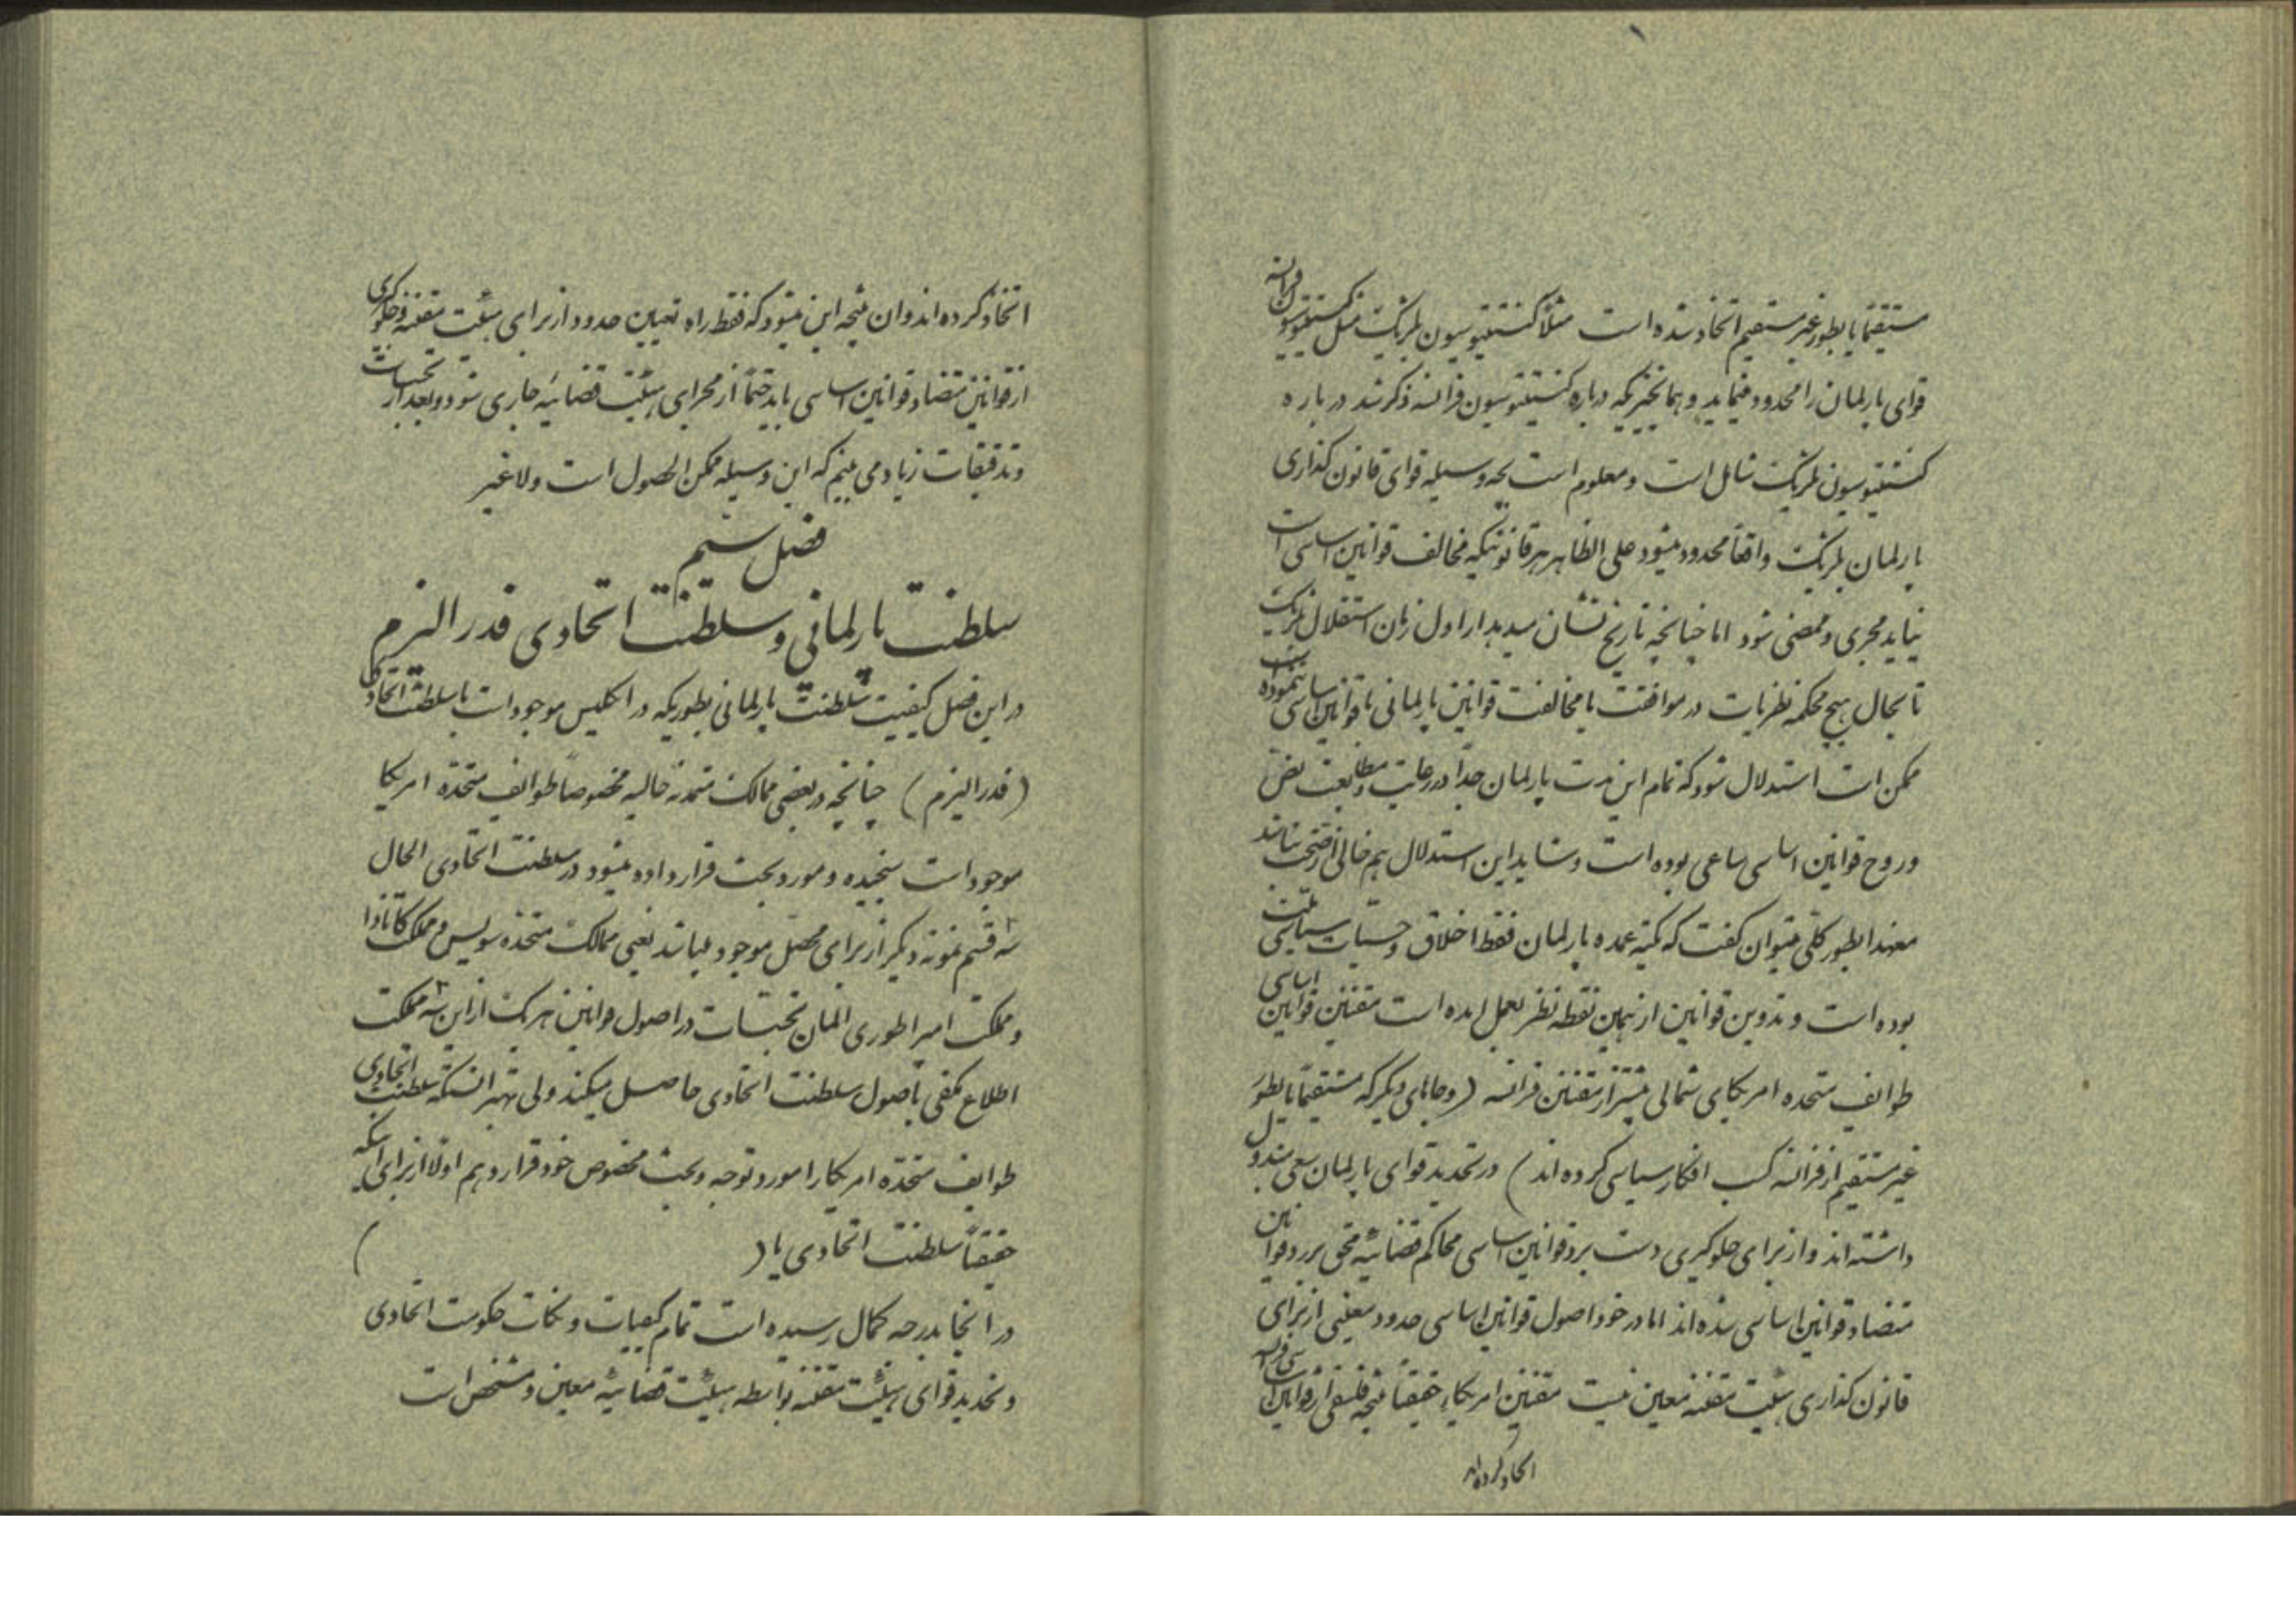 مستقیماً یا بطور غیر مستقیم اتخاذ شده است مثلاً کنستیتوسیون بلژیک مثل کنستیتوسیون فرانسه
قوای پارلمان را محدود مینماید و همانچیزیکه درباره کنستیتوسیون فرانسه ذکر شد درباره
کنستیتوسیون بلژیک شامل است و معلوم است بچه وسیله قوای قانون گذاری
پارلمان بلژیک واقعاً محدود میشود علی الظاهر هر قانونیکه مخالف قوانین اساسی است
نباید مجری و ممضی شود اما چنانچه تاریخ نشان میدهد از اول زمان استقلال بلژیک
تا بحال هیچ محکمه نظریات در موافقت یا مخالفت قوانین پارلمانی با قوانین اساسی ننموده است
ممکن است استدلال شود که تمام این مدت پارلمان جداً در رعایت و مطابعت نص
و روح قوانین اساسی ساعی بوده است و شاید این استدلال هم خالی از صحت نباشد
معهذا بطور کلی میتوان گفت که تکیه عمده پارلمان فقط اخلاق و حسیات سیاسی ملت
بوده است و تدوین قوانین از همین نقطه نظر بعمل آمده است مقننین قوانین اساسی
طوایف متحده امریکای شمالی بیشتر از مقننین فرانسه (و جاهای دیگر که مستقیماً یا بطور
غیر مستقیم از فرانسه کسب افکار سیاسی کرده اند) در تحدید قوای پارلمان سعی مبذول
داشته اند و از برای جلوگیری دست برد قوانین اساسی محاکم قضائیه محق برد قوانین
متضاد قوانین اساسی شده اند اما در خود اصول قوانین اساسی حدود معینی از برای
قانون گذاری هیئت مقننه معین نیست مقننین امریکا حقیقتاً نتیجه فلسفی از قوانین اساسی فرانسه
اتخاذ کرده اند
اتخاذ کرده اند و ان نتیجه این میشود که فقط راه تعیین حدود از برای هیئت مقننه و جلوگیری
از قوانین متضاد قوانین اساسی باید حتماً از مجرای هیئت قضائیه جاری شود و بعد از تجسسات
و تدقیقات زیاد می بینیم که این وسیله ممکن الحصول است و لاغیر
فصل سیّم
سلطنت پارلمانی و سلطنت اتحادی فدرالیزم
در این فصل کیفیت سلطنت پارلمانی بطوریکه در انگلیس موجود است با سلطنت اتحادی
(فدرالیزم) چنانچه در بعضی ممالک متمدنه حالیه مخصوصاً طوایف متحده امریکا
موجود است سنجیده و مورد بحث قرار داده میشود در سلطنت اتحادی الحال
سه قسم نمونه دیگر از برای محصل موجود میباشد یعنی ممالک متحده سویس و مملکت کانادا
و مملکت امپراطوری المان تجسسات در اصول قوانین هریک از این سه مملکت
اطلاع مکفی باصول سلطنت اتحادی حاصل میکند ولی بهتر انستکه سلطنت اتحادی
طوایف متحده امریکا را مورد توجه و بحث مخصوص خود قرار دهم اولاً از برای اینکه
حقیقتاً سلطنت اتحادی یا ( )
در انجا بدرجه کمال رسیده است تمام کیفیات و نکات حکومت اتحادی
و تحدید قوای هیئت مقننه بواسطه هیئت قضائیه معین و مشخص است